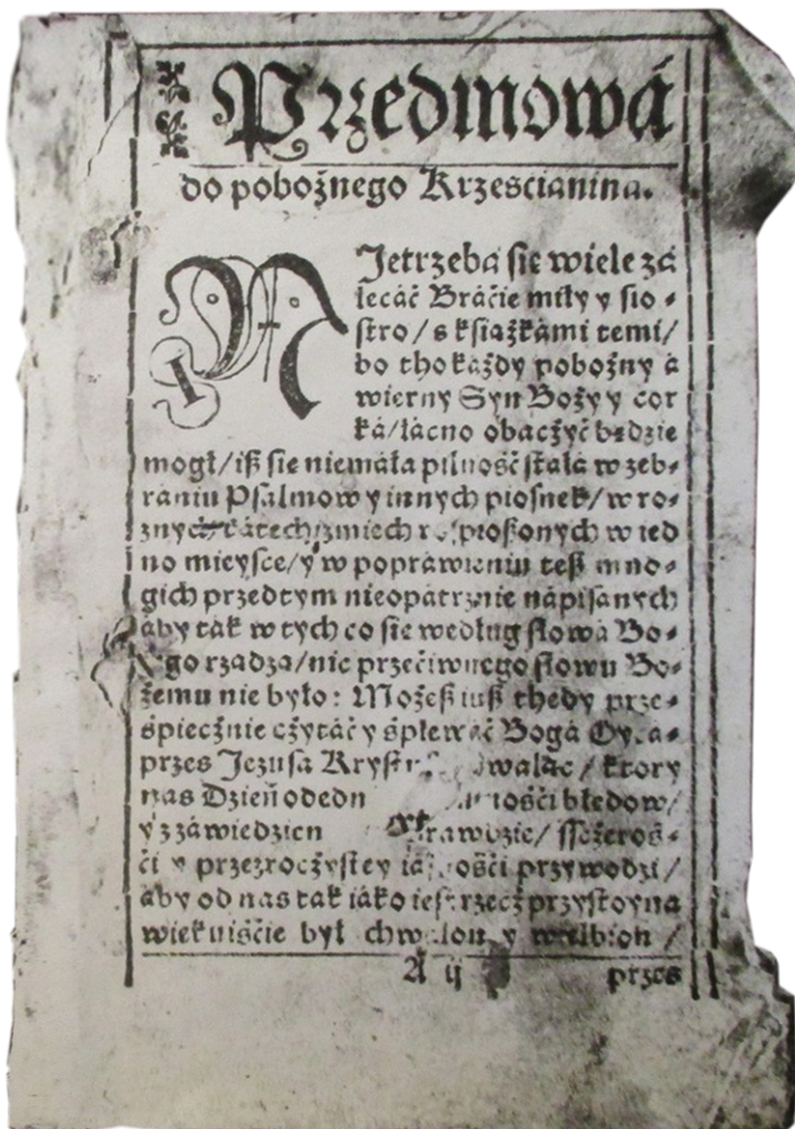 Przedmowá
do pobożnego Krzescianina.
NJetrzebá sie wiele zá
lecáć Bráćie miły y sio⸗
stro/ s ksiażkámi temi/
bo tho każdy pobożny á
wierny Syn Boży y cor
ká/ łácno obacżyć bedzie
mogł/ iß sie niemáła pilność stała w zeb⸗
raniu Psalmow y innych piosnek/ w ro⸗
znych w ied
no mieysce/ y w poprawieniu teß mno⸗
gich przedtym nieopátrznie nápisanych
áby ták w tych co sie według słowá Bo⸗
go rzadza/ nic przećiwnego słowu Bo⸗
żemu nie było: Możeß iuß thedy prze⸗
śpiecżnie cżytáć y śpiewáć Bogá
przes Jezusa / ktory
nas Dzień odedn błedow/
y z záwiedzien
ći y przezrocżystey przywodzi/
áby od nas ták iáko iest rzecż przystoyna
wiekuiśćie był chwalon y wielbion /
A ij przes